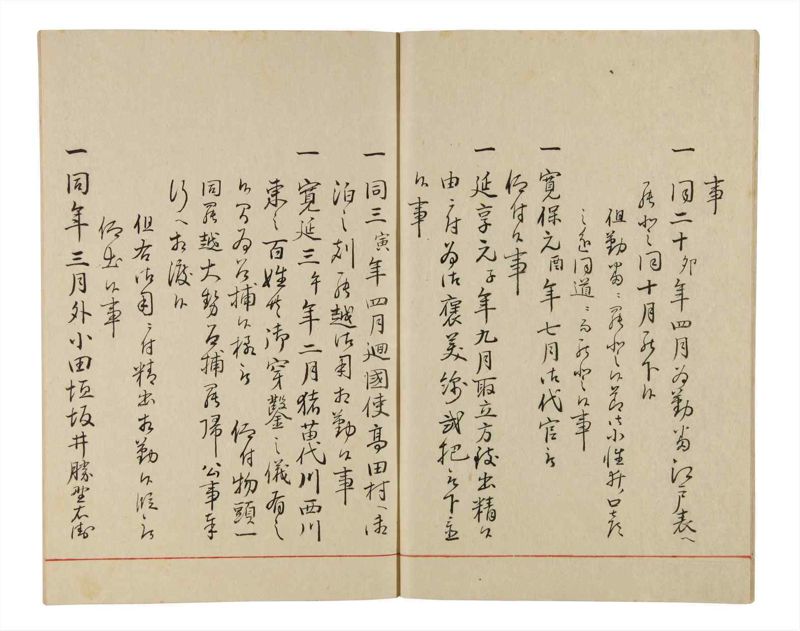 事
一 同二十卯年四月為勤番江戸表へ
罷登同十月罷下候
但勤番ニ罷登候節御小性井口喜
之進同道ニ而罷登候事
一 寛保元酉年七月御代官被
仰付候事
一 延享元子年九月取立方終出精候
由ニ付為御褒美綿弐把被下置
候事
一 同三寅年四月廻國使高田村へ御
泊之刻罷越御用相勤候事
一 寛延三午年二月猪苗代川西川
東之百姓共御穿鑿之儀有之
候間為召捕候様被 仰付物頭一
同罷越大勢召捕罷帰公事奉
行へ相渡候
但右御用ニ付精出相勤候段被
仰出候事
一 同年三月外小田垣坂井勝野右衛